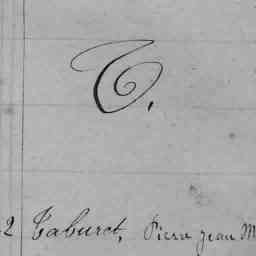 T.
2 Taburet, Pierre Jean M